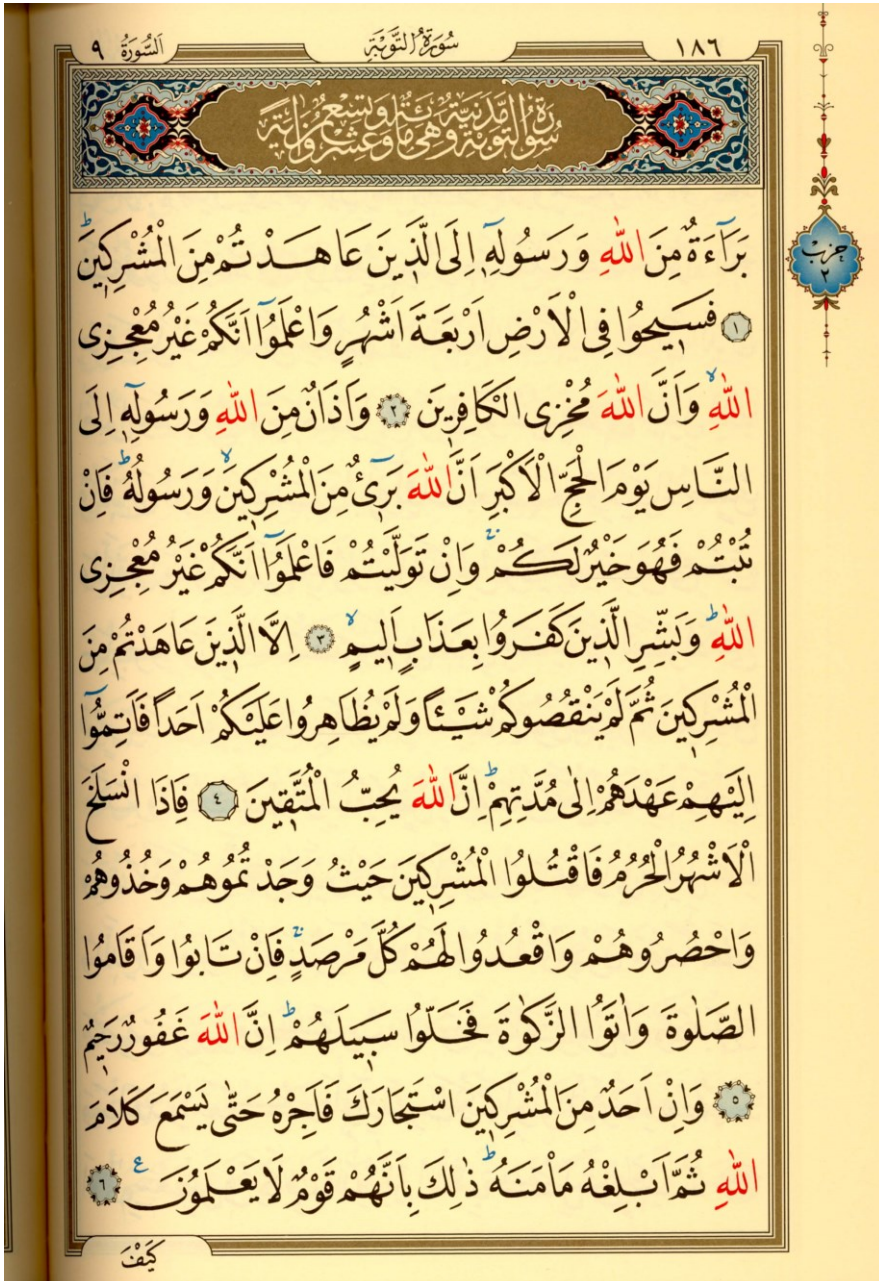 ١٨٦ سُورَةُ التَّوْبَةِ اَلسُّورَةُ ٩
سُورَةُ التَّوْبَةِ مَدَنِيَّةٌ وَهِىَ مِائَةٌ وَتِسْعٌ وَعِشْرُونَ اٰيَةً
حزب ٢
بَرَٓاءَةٌ مِنَ اللّٰهِ وَرَسُولِهٖٓ اِلَى الَّذٖينَ عَاهَدْتُمْ مِنَ الْمُشْرِكٖينَؕ
﴿١﴾ فَسٖيحُوا فِى الْاَرْضِ اَرْبَعَةَ اَشْهُرٍ وَاعْلَمُٓوا اَنَّكُمْ غَيْرُ مُعْجِزِى
اللّٰهِۙ وَاَنَّ اللّٰهَ مُخْزِى الْكَافِرٖينَ ﴿٢﴾ وَاَذَانٌ مِنَ اللّٰهِ وَرَسُولِهٖٓ اِلَى
النَّاسِ يَوْمَ الْحَجِّ الْاَكْبَرِ اَنَّ اللّٰهَ بَرٖٓىءٌ مِنَ الْمُشْرِكٖينَۙ وَرَسُولُهُؕ فَاِنْ
تُبْتُمْ فَهُوَ خَيْرٌ لَكُمْۚ وَاِنْ تَوَلَّيْتُمْ فَاعْلَمُٓوا اَنَّكُمْ غَيْرُ مُعْجِزِى
اللّٰهِؕ وَبَشِّرِ الَّذٖينَ كَفَرُوا بِعَذَابٍ اَلٖيمٍۙ ﴿٣﴾ اِلَّا الَّذٖينَ عَاهَدْتُمْ مِنَ
الْمُشْرِكٖينَ ثُمَّ لَمْ يَنْقُصُوكُمْ شَيْـًٔا وَلَمْ يُظَاهِرُوا عَلَيْكُمْ اَحَدًا فَاَتِمُّٓوا
اِلَيْهِمْ عَهْدَهُمْ اِلٰى مُدَّتِهِمْؕ اِنَّ اللّٰهَ يُحِبُّ الْمُتَّقٖينَ ﴿٤﴾ فَاِذَا انْسَلَخَ
الْاَشْهُرُ الْحُرُمُ فَاقْتُلُوا الْمُشْرِكٖينَ حَيْثُ وَجَدْتُمُوهُمْ وَخُذُوهُمْ
وَاحْصُرُوهُمْ وَاقْعُدُوا لَهُمْ كُلَّ مَرْصَدٍۚ فَاِنْ تَابُوا وَاَقَامُوا
الصَّلٰوةَ وَاٰتَوُا الزَّكٰوةَ فَخَلُّوا سَبٖيلَهُمْؕ اِنَّ اللّٰهَ غَفُورٌ رَحٖيمٌ
﴿٥﴾ وَاِنْ اَحَدٌ مِنَ الْمُشْرِكٖينَ اسْتَجَارَكَ فَاَجِرْهُ حَتّٰى يَسْمَعَ كَلَامَ
اللّٰهِ ثُمَّ اَبْلِغْهُ مَاْمَنَهُؕ ذٰلِكَ بِاَنَّهُمْ قَوْمٌ لَا يَعْلَمُونَ ع ﴿٦﴾
كَيْفَ